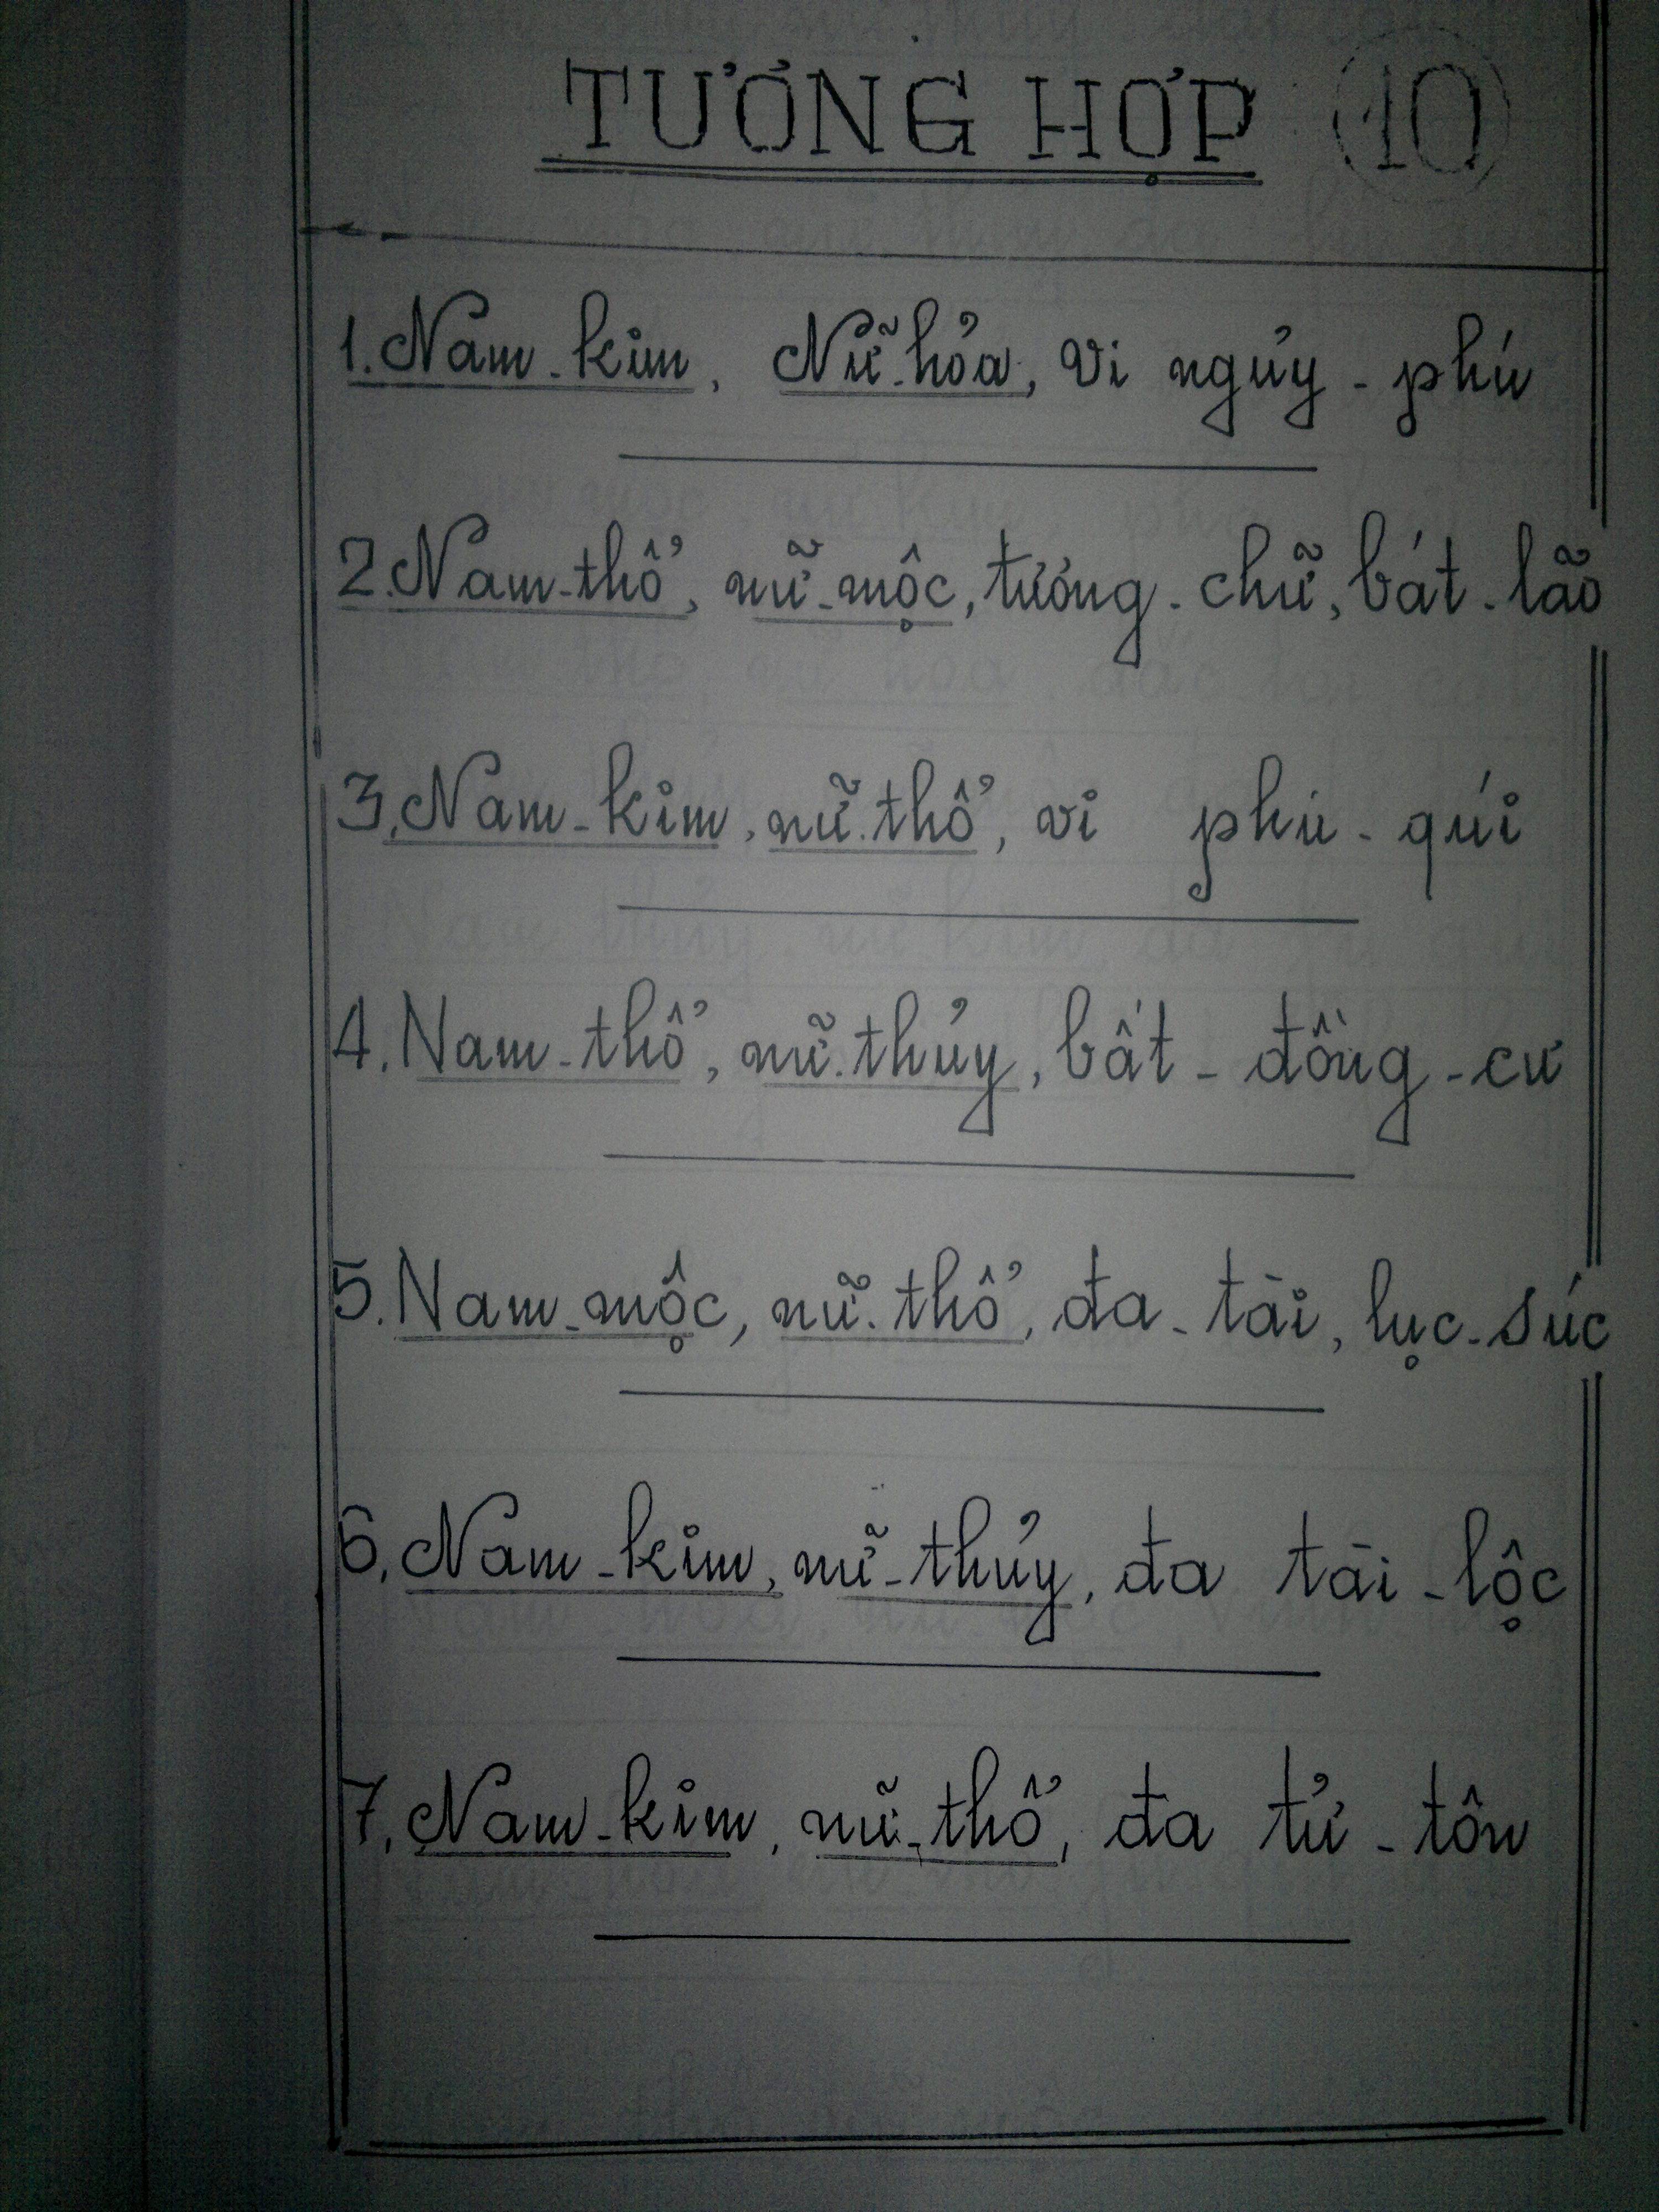 TƯƠNG HỢP 10
1. Nam - kim, Nữ - hỏa, vi ngúy - phú
2. Nam - thổ, nữ - mộc, tướng - chữ, bát - lão
3. Nam - kim, nữ - thổ, vi phú - qúi
4. Nam - thổ, nữ - thủy, bất - đồng - cư
5. Nam - mộc, nữ - thổ, đa - tài, lục - súc
6. Nam - kim, nữ - thủy, đa tài - lộc
7. Nam - kim, nữ - thổ, đa tử - tôn